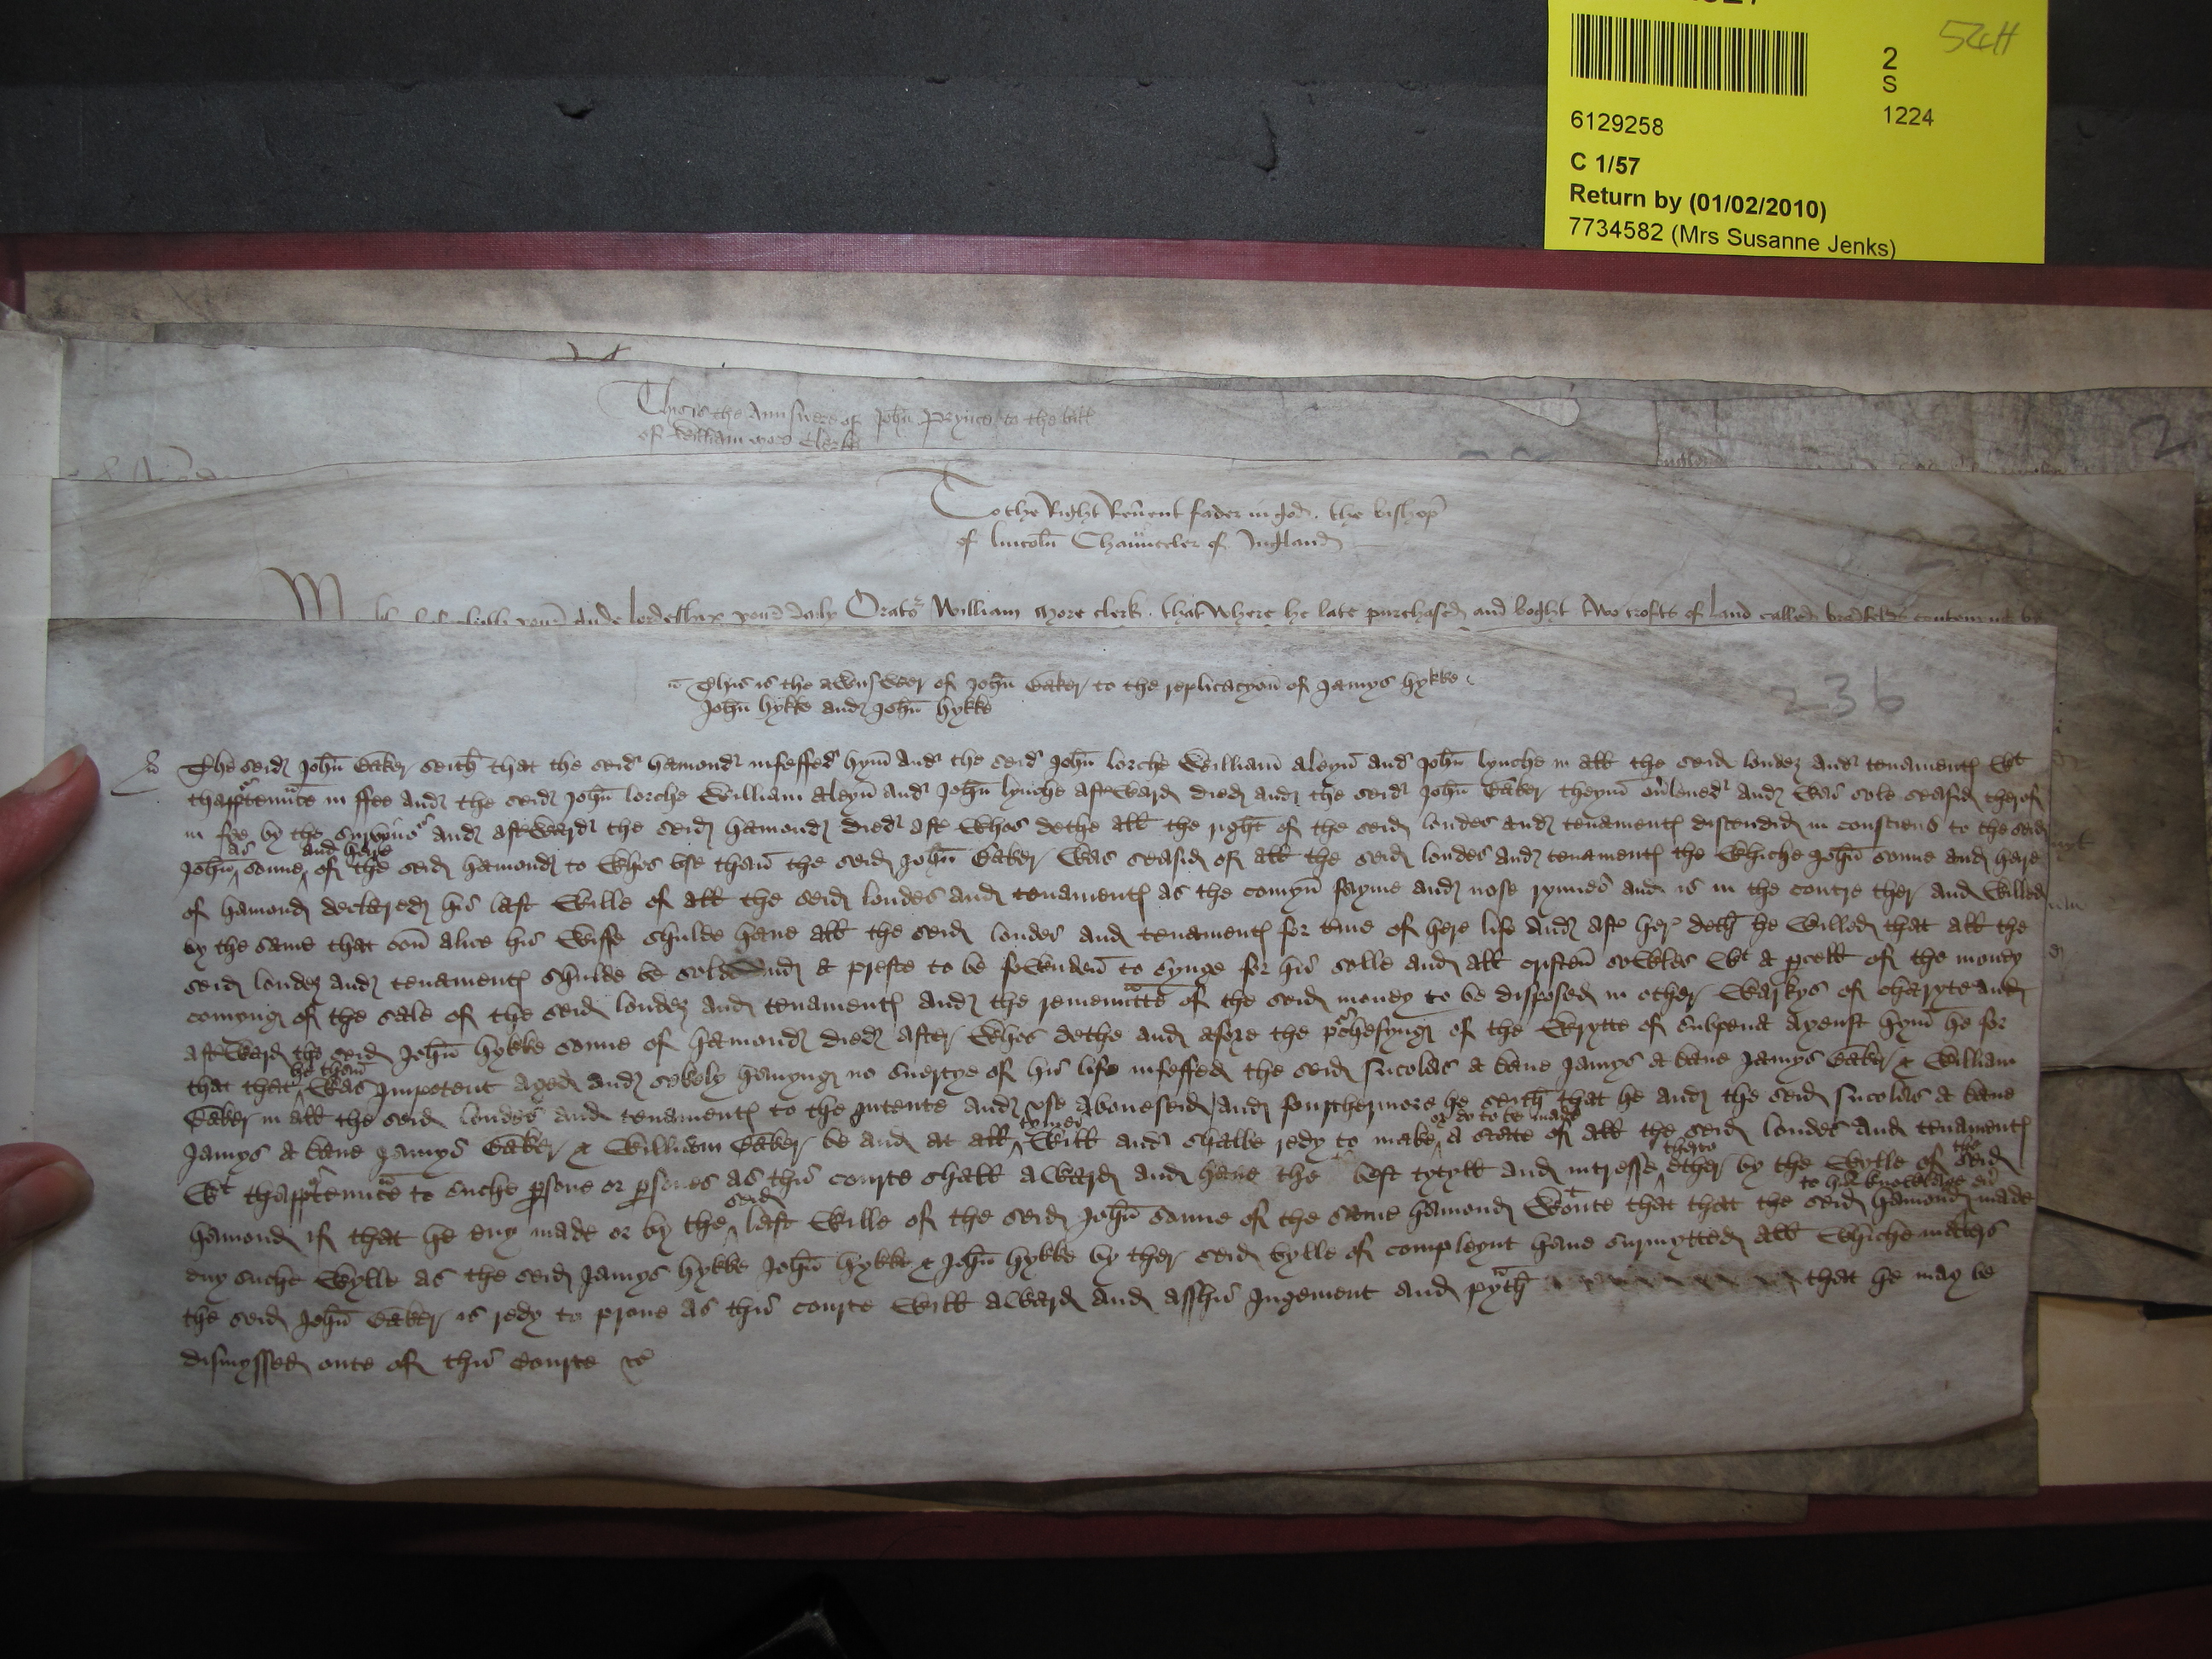 2
S
1224
52cH
6129258
C 1/57
Return by (01/02/2010)
7734582 (Mrs Susanne Jenks)
This is the Annswere of John Prynce to the bill
of William more Clerke
To the Right Reu'ent fader in god. the bisshop
of lincoln Chaunceler of Ingland
lordeship your daily Orator William more clerk. that where he late purchased and boght two crofts of land called
236
This is the awnswer of John Baker to the replicacyon of Jamys hykke
John hykke and John hykke
The seid John Baker seith that the seid hamond infeffed hym and the seid John lorche William aleyn and John lynche in all the seid londez and tenamentes wt
thapportenunce in ffee and the seid John lorche William aleyn and John lynche afterward died and the seid John Baker theym ou'leued and was sole seased therof
in fee by the and afterward the seid hamond died aft' whos dethe all the right of the seid londes and tenamentes discendid in consciens to the seid
John as sonne and heire of the seid hamond to whos vse than the seid John Baker was seasid of all the seid londes and tenamentes the whiche John sonne and heire
of hamond declared his last wille of all the seid londes and tenamentes as the comyn fayme and nose rynnes and is in the contre ther and willed
by the same that oon alice his wiffe shulde haue all the seid londes and tenamentes for time of here life and aft' her deth he willed that all the
seid londez and tenamentes shulde be sold and a preste to be fownden to synge for his solle and all cristen sowles wt a p'cell of the money
comyng of the sale of the seid londez and tenamentes and the of the seid money to be disposed in other warkys of charyte and
afterward the seid John hykke sonne of hamond died after whos dethe and afore the p'chesyng of the wrytte of subpena ayenst hym he for
that that he than was Impotent aged and sekely hauyng no suertye of his life infeffed the seid nicolas a bane Jamys a bane Jamys Baker & William
Baker in all the seid londes and tenamentes to the intente and vse aboueseid and fourthermore he seith that he and the seid nicolas a bane
Jamys a bane Jamys Baker & William Baker be and at all tymes will and shalbe redy to make or do to be made a state of all the seid londes and tenamentes
wt thapportenunce to suche p'sone or p'sones as this courte shall award and haue the best tytyll and intresse therto ether by the wylle of the seid
hamond if that he eny made or by the seid last wille of the seid John sonne of the same hamond that that the seid hamond to his knowlege made
eny suche wylle as the seid Jamys hykke John hykke & John hykke by ther seid bylle of compleynt haue surmytted all whiche maters
the seid John Baker is redy to proue as this courte will award and Jugement and pyth that he may be
dismyssed oute of this Courte &c